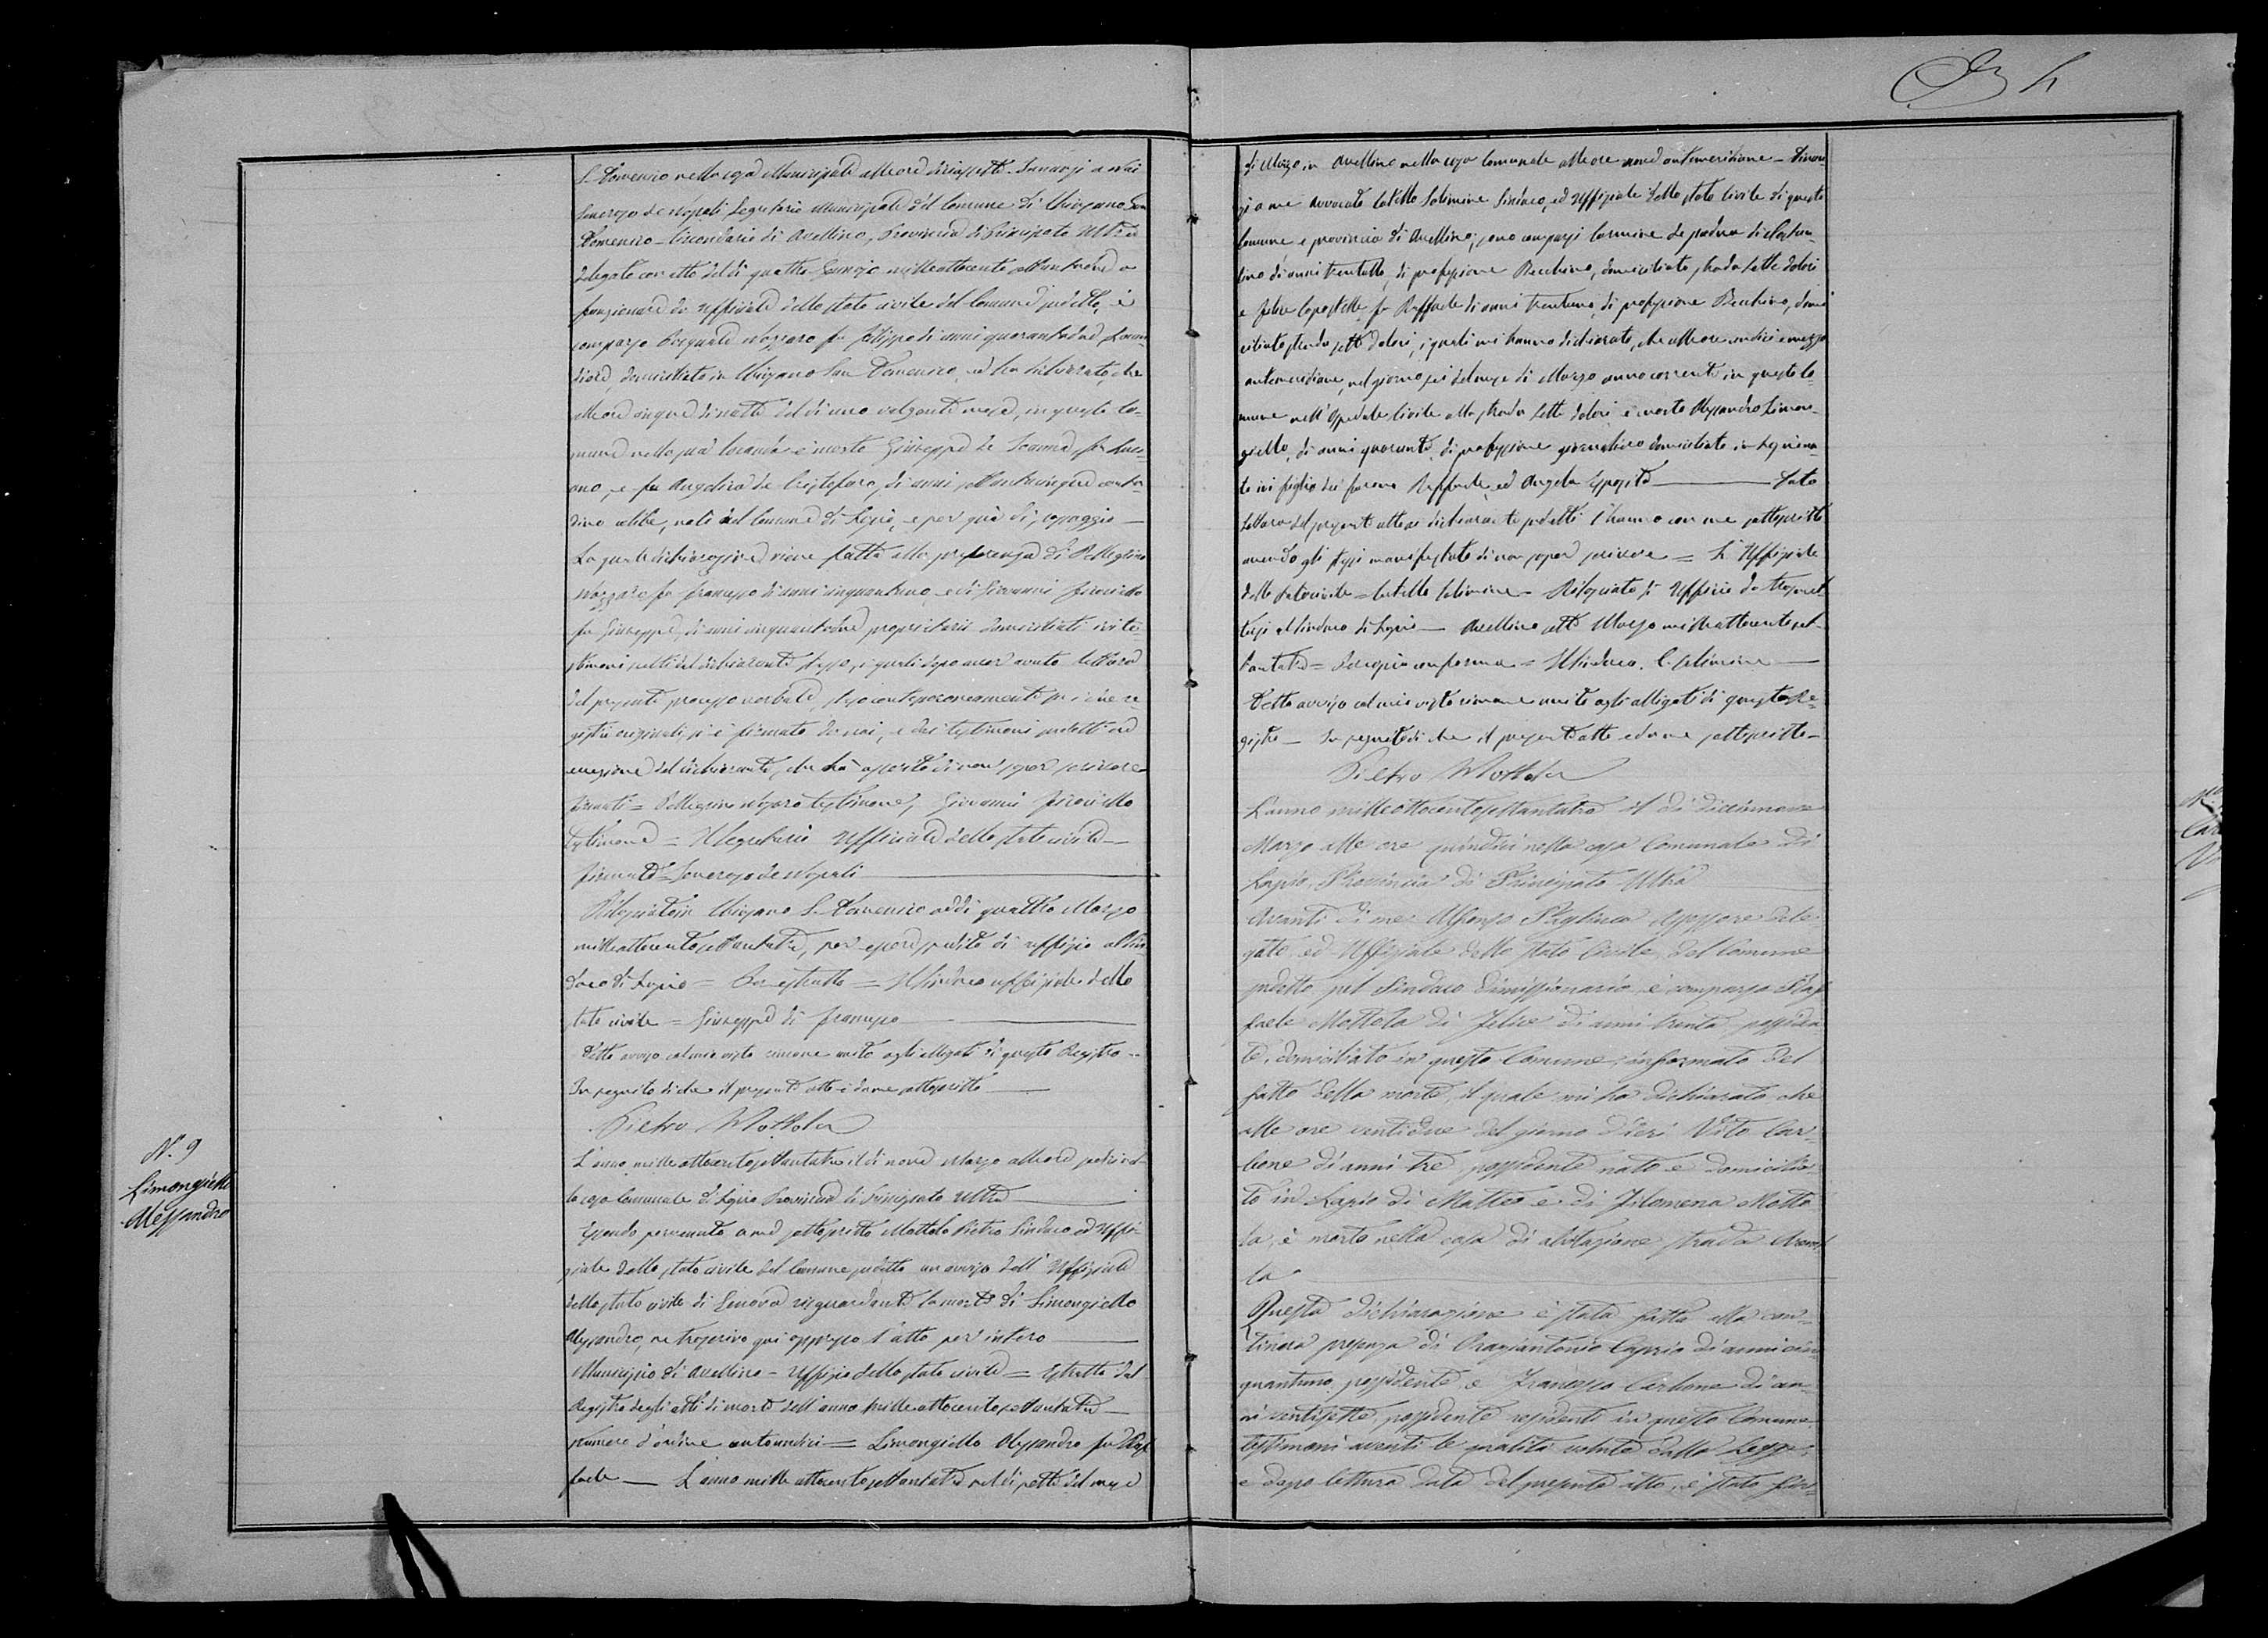 S. Domenico nella casa Municipale alle ore diciassette. Innanzi a noi
de Napoli Segretario Municipale del Comune di Chiusano San
Domenico Circondario di Avellino, Provincia di Principato Ultra
delegato con atto del di quattro Gennajo milleottocento settantadue a
funzionare da uffiziale dello stato civile del Comune sudetto, è
comparso Pasquale Nazzaro fu Filippo di anni quarantadue locan
diere, domiciliato in Chiusano San Domenico, ed ha dichiarato, che
alle ore cinque di notte del di uno volgente mese, in questo Co-
mune nella sua locanda è morto Giuseppe de Joanna, fu
ano, e fu Angelica de Cristofaro, di anni settantacinque conta-
dino celibe, nato nel Comune di Lapio, e per quà di passaggio —
La quale dichiarazione viene fatta alla presenza di Pellegrino
Nazzaro fu Francesco di anni cinquantuno, e di Giovanni
fu Giuseppe, di anni cinquantadue proprietarii domiciliati ivi te-
stimoni scelti dal dichiarante stesso, i quali dopo aver avuto lettura
del presente processo verbale, steso contemporaneamente su i due re-
gistri originali, si è firmato da noi, e dai testimoni sudetti ad
eccezione del dichiarante, che ha asserito di non saper scrivere
Firmati = Pellegrino Nazzaro testimone, Giovanni
testimone = Il Segretario Uffiziale dello stato civile —
Firmato = de Napoli
Rilasciato in Chiusano S. Domenico addì quattro Marzo
milleottocentosettantatre, per essere spedito di uffizio al Sin
daco di Lapio = Per estratto = Il Sindaco uffiziale dello
stato civile = Giuseppe di Francesco
Detto avviso col mio visto rimane unito agli allegati di questo Registro —
In seguito di che il presente atto è da me sottoscritto —
Pietro Mottola
N.° 9
Limongiello
Alessandro
L'anno milleottocentosettantatre il dì nove Marzo alle ore sedici nel-
la casa Comunale di Lapio Provincia di Principato Ultra —
Essendo pervenuto a me sottoscritto Mottola Pietro Sindaco ed Uffi-
ziale dello stato civile del Comune sudetto un avviso dell' Uffiziale
dello stato civile di risguardante la morte di Limongiello
Alessandro, ne trascrivo qui appresso l'atto per intero —
Municipio di Avellino = Uffizio dello stato civile = Estratto dal
Registro degli atti di morte dell'anno milleottocentosettantatre —
Numero d'ordine centoundici = Limongiello Alessandro fu Raf
faele — L'anno mille ottocentosettantatre nel dì sette del mese
4
di Marzo in Avellino nella casa Comunale alle ore nove antimeridiane — Dinan-
zi a me Avvocato Catello Solimene Sindaco, ed Uffiziale dello stato Civile di questo
Comune e provincia di Avellino; sono comparsi Carmine
di anni di professione Becchino, domiciliato strada sette dolori
e Felice fu Raffaele di anni trentuno, di professione Becchino, domi
ciliato strada sette dolori, i quali mi hanno dichiarato, che alle ore undici e mezzo
antimeridiane, nel giorno sei del mese di Marzo anno corrente in questo Co-
mune nell'Ospedale Civile alla strada sette dolori è morto Alessandro Limon-
giello, di anni quaranta, di professione giornaliero domiciliato in Lapio na
to ivi figlio dei furono Raffaele, ed Angela Esposito — Data
lettura del presente atto ai dichiaranti sudetti l'hanno con me sottoscritto
avendo gli stessi manifestato di non saper scrivere = L'Uffiziale
dello stato civile = Catello Solimene = Rilasciato di Uffizio da trasmet
tersi al Sindaco di Lapio — Avellino sette Marzo milleottocentoset-
tantatre = Per copia conforme = Il Sindaco. C. Solimene —
Detto avviso col mio visto rimane unito agli allegati di questo Re-
gistro — In seguito di che il presente atto è da me sottoscritto —
Pietro Mottola
L'anno milleottocentosettantatre il dì diecinnove
Marzo alle ore quindici nella casa Comunale di
Lapio, Provincia di Principato Ultra
Avanti di me Alfonso Assessore dele-
gato, ed Uffiziale dello stato Civile del Comune
sudetto pel Sindaco dimissionario, è comparso Raf
faele Mottola di Felice di anni trenta, possiden
te, domiciliato in questo Comune, informato del
fatto della morte, il quale mi ha dichiarato, che
alle ore ventidue del giorno d'ieri Vito Car-
bone di anni tre, possidente nato e domicilia
to in Lapio di Matteo e di Filomena Motto
la, è morto nella casa di abitazione strada
la
Questa dichiarazione è stata fatta alla con-
tinua presenza di Oraziantonio Caprio di anni cin
quantuno possidente, e Francesco Carbone di an-
ni ventisette, possidente residenti in questo Comune
testimoni aventi le qualità volute dalla Legge;
e dopo lettura data del presente atto, è stato